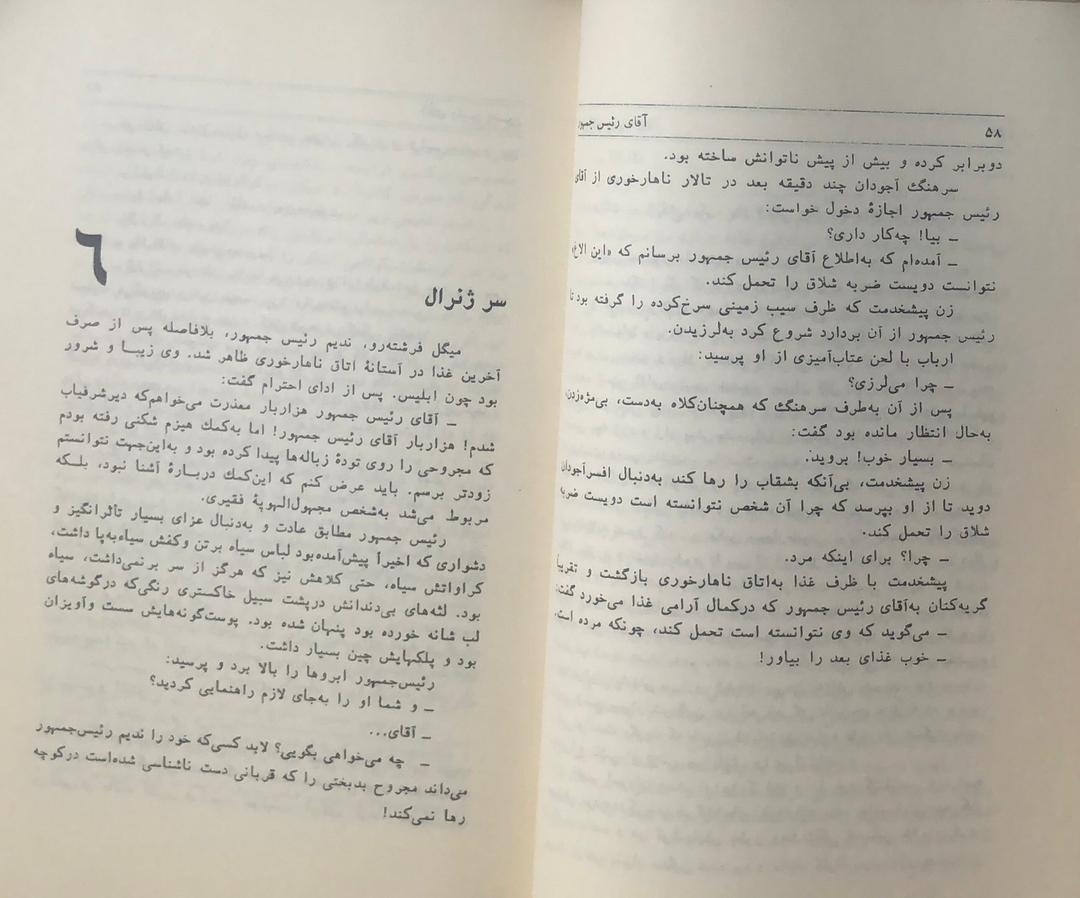 ۵۸
آقای رئیس جمهور
دوبرابر کرده و بیش از پیش ناتوانش ساخته بود.
سرهنگ آجودان چند دقیقه بعد در تالار ناهارخوری از آقای
رئیس جمهور اجازهٔ دخول خواست:
ـ بیا! چه‌کار داری؟
ـ آمده‌ام که به‌اطلاع آقای رئیس جمهور برسانم که «این الاغ»
نتوانست دویست ضربه شلاق را تحمل کند.
زن پیشخدمت که ظرف سیب زمینی سرخ‌کرده را گرفته بود تا
رئیس جمهور از آن بردارد شروع کرد به‌لرزیدن.
ارباب با لحن عتاب‌آمیزی از او پرسید:
ـ چرا می‌لرزی؟
پس از آن به‌طرف سرهنگ که همچنان‌کلاه به‌دست، بی‌مژه‌زدن،
به‌حال انتظار مانده بود گفت:
ـ بسیار خوب! بروید.
زن پیشخدمت، بی‌آنکه بشقاب را رها کند به‌دنبال افسرآجودان
دوید تا از او بپرسد که چرا آن شخص نتوانسته است دویست ضربه
شلاق را تحمل کند.
ـ چرا؟ برای اینکه مرد.
پیشخدمت با ظرف غذا به‌اتاق ناهارخوری بازگشت و تقریباً
گریه‌کنان به‌آقای رئیس جمهور که درکمال آرامی غذا می‌خورد گفت:
ـ می‌گوید که وی نتوانسته است تحمل کند، چونکه مرده است.
ـ خوب غذای بعد را بیاور!
٦
سر ژنرال
میگل فرشته‌رو، ندیم رئیس جمهور، بلافاصله پس از صرف
آخرین غذا در آستانهٔ اتاق ناهارخوری ظاهر شد. وی زیبا و شرور
بود چون ابلیس. پس از ادای احترام گفت:
ـ آقای رئیس جمهور هزاربار معذرت می‌خواهم‌که دیرشرفیاب
شدم! هزاربار آقای رئیس جمهور! اما به‌کمك هیزم شکنی رفته بودم
که مجروحی را روی تودهٔ زباله‌ها پیدا کرده بود و به‌این‌جهت نتوانستم
زودتر برسم. باید عرض کنم که این‌کمك دربارهٔ آشنا نبود، بلکه
مربوط می‌شد به‌شخص مجهول‌الهویهٔ فقیری.
رئیس جمهور مطابق عادت و به‌دنبال عزای بسیار تأثرانگیز و
دشواری که اخیراً پیش‌آمده‌بود لباس سیاه برتن وکفش سیاه‌به‌پا داشت،
کراواتش سیاه، حتی کلاهش نیز که هرگز از سر برنمی‌داشت، سیاه
بود. لثه‌های بی‌دندانش درپشت سبیل خاکستری رنگی‌که درگوشه‌های
لب شانه خورده بود پنهان شده بود. پوست‌گونه‌هایش سست وآویزان
بود و پلکهایش چین بسیار داشت.
رئیس‌جمهور ابروها را بالا برد و پرسید:
ـ و شما او را به‌جای لازم راهنمایی کردید؟
ـ آقای...
ـ چه می‌خواهی بگویی؟ لابد کسی‌که خود را ندیم رئیس‌جمهور
می‌داند مجروح بدبختی را که قربانی دست ناشناسی شده‌است درکوچه
رها نمی‌کند!